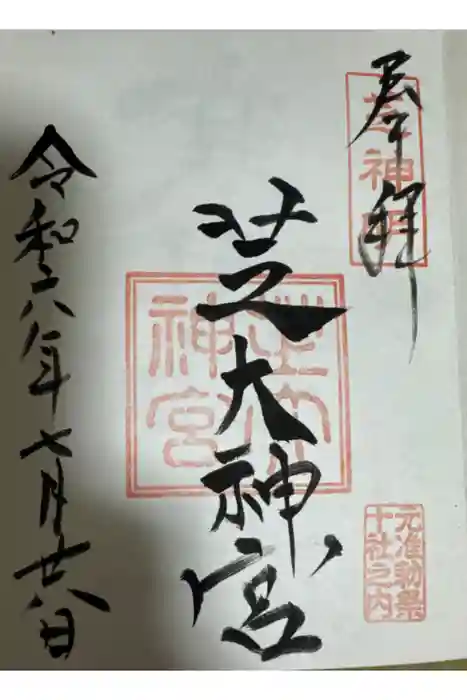 奉拝
芝神明
元准勅祭
十社之内
芝大神宮
芝大
神宮
令和六年七月廿八日